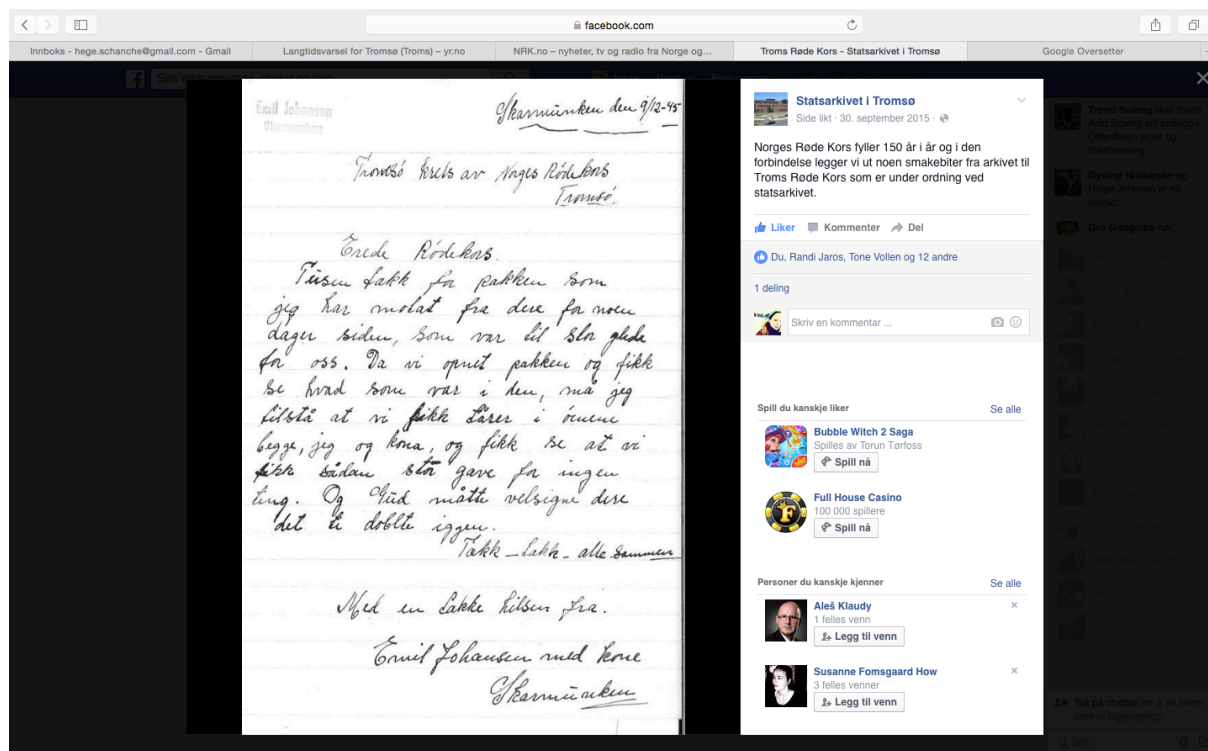 facebook.com
Innboks - hege.schanche@gmail.com - Gmail
Langtidsvarsel for Tromsø (Troms) – yr.no
NRK.no – nyheter, tv og radio fra Norge og...
Troms Røde Kors - Statsarkivet i Tromsø
Google Oversetter
Søk etter personer, steder og ting
Emil Johansen
Skarmunken
Skarmunken den 9/12-45
Tromsö krets av Norges Rödekors
Tromsö.
Erede Rödekors.
Tusen takk for pakken som
jeg har motat fra dere for noen
dager siden, som var til stor glede
for oss. Da vi opnet pakken og fikk
se hvad som var i den, må jeg
tilstå at vi fikk tårer i önene
begge, jeg og kona, og fikk se at vi
fikk sådan stor gave for ingen
ting. Og Gud måtte velsigne dere
det ti doblte iggen.
Takk – takk – alle sammen
Med en takke hilsen fra.
Emil Johansen med kone
Skarmunken
Statsarkivet i Tromsø
Side likt · 30. september 2015 ·
Norges Røde Kors fyller 150 år i år og i den
forbindelse legger vi ut noen smakebiter fra arkivet til
Troms Røde Kors som er under ordning ved
statsarkivet.
Liker Kommenter Del
Du, Randi Jaros, Tone Vollen og 12 andre
1 deling
Skriv en kommentar ...
Spill du kanskje liker Se alle
Bubble Witch 2 Saga
Spilles av Torun Tørfoss
Spill nå
Full House Casino
100 000 spillere
Spill nå
Personer du kanskje kjenner Se alle
Aleš Klaudy
1 felles venn
Legg til venn
Susanne Fomsgaard How
3 felles venner
Legg til venn
Trond Soleng liker Svein
Arild Soleng sitt innlegg i
Olderdalen jeger og
fiskeforening.
Øyvind Hilmarsen og
Helge Johnsen er nå
venner.
Gro Gangnæs har
Slå på chatten for å se hvem
som er tilgjengelige.
Søk